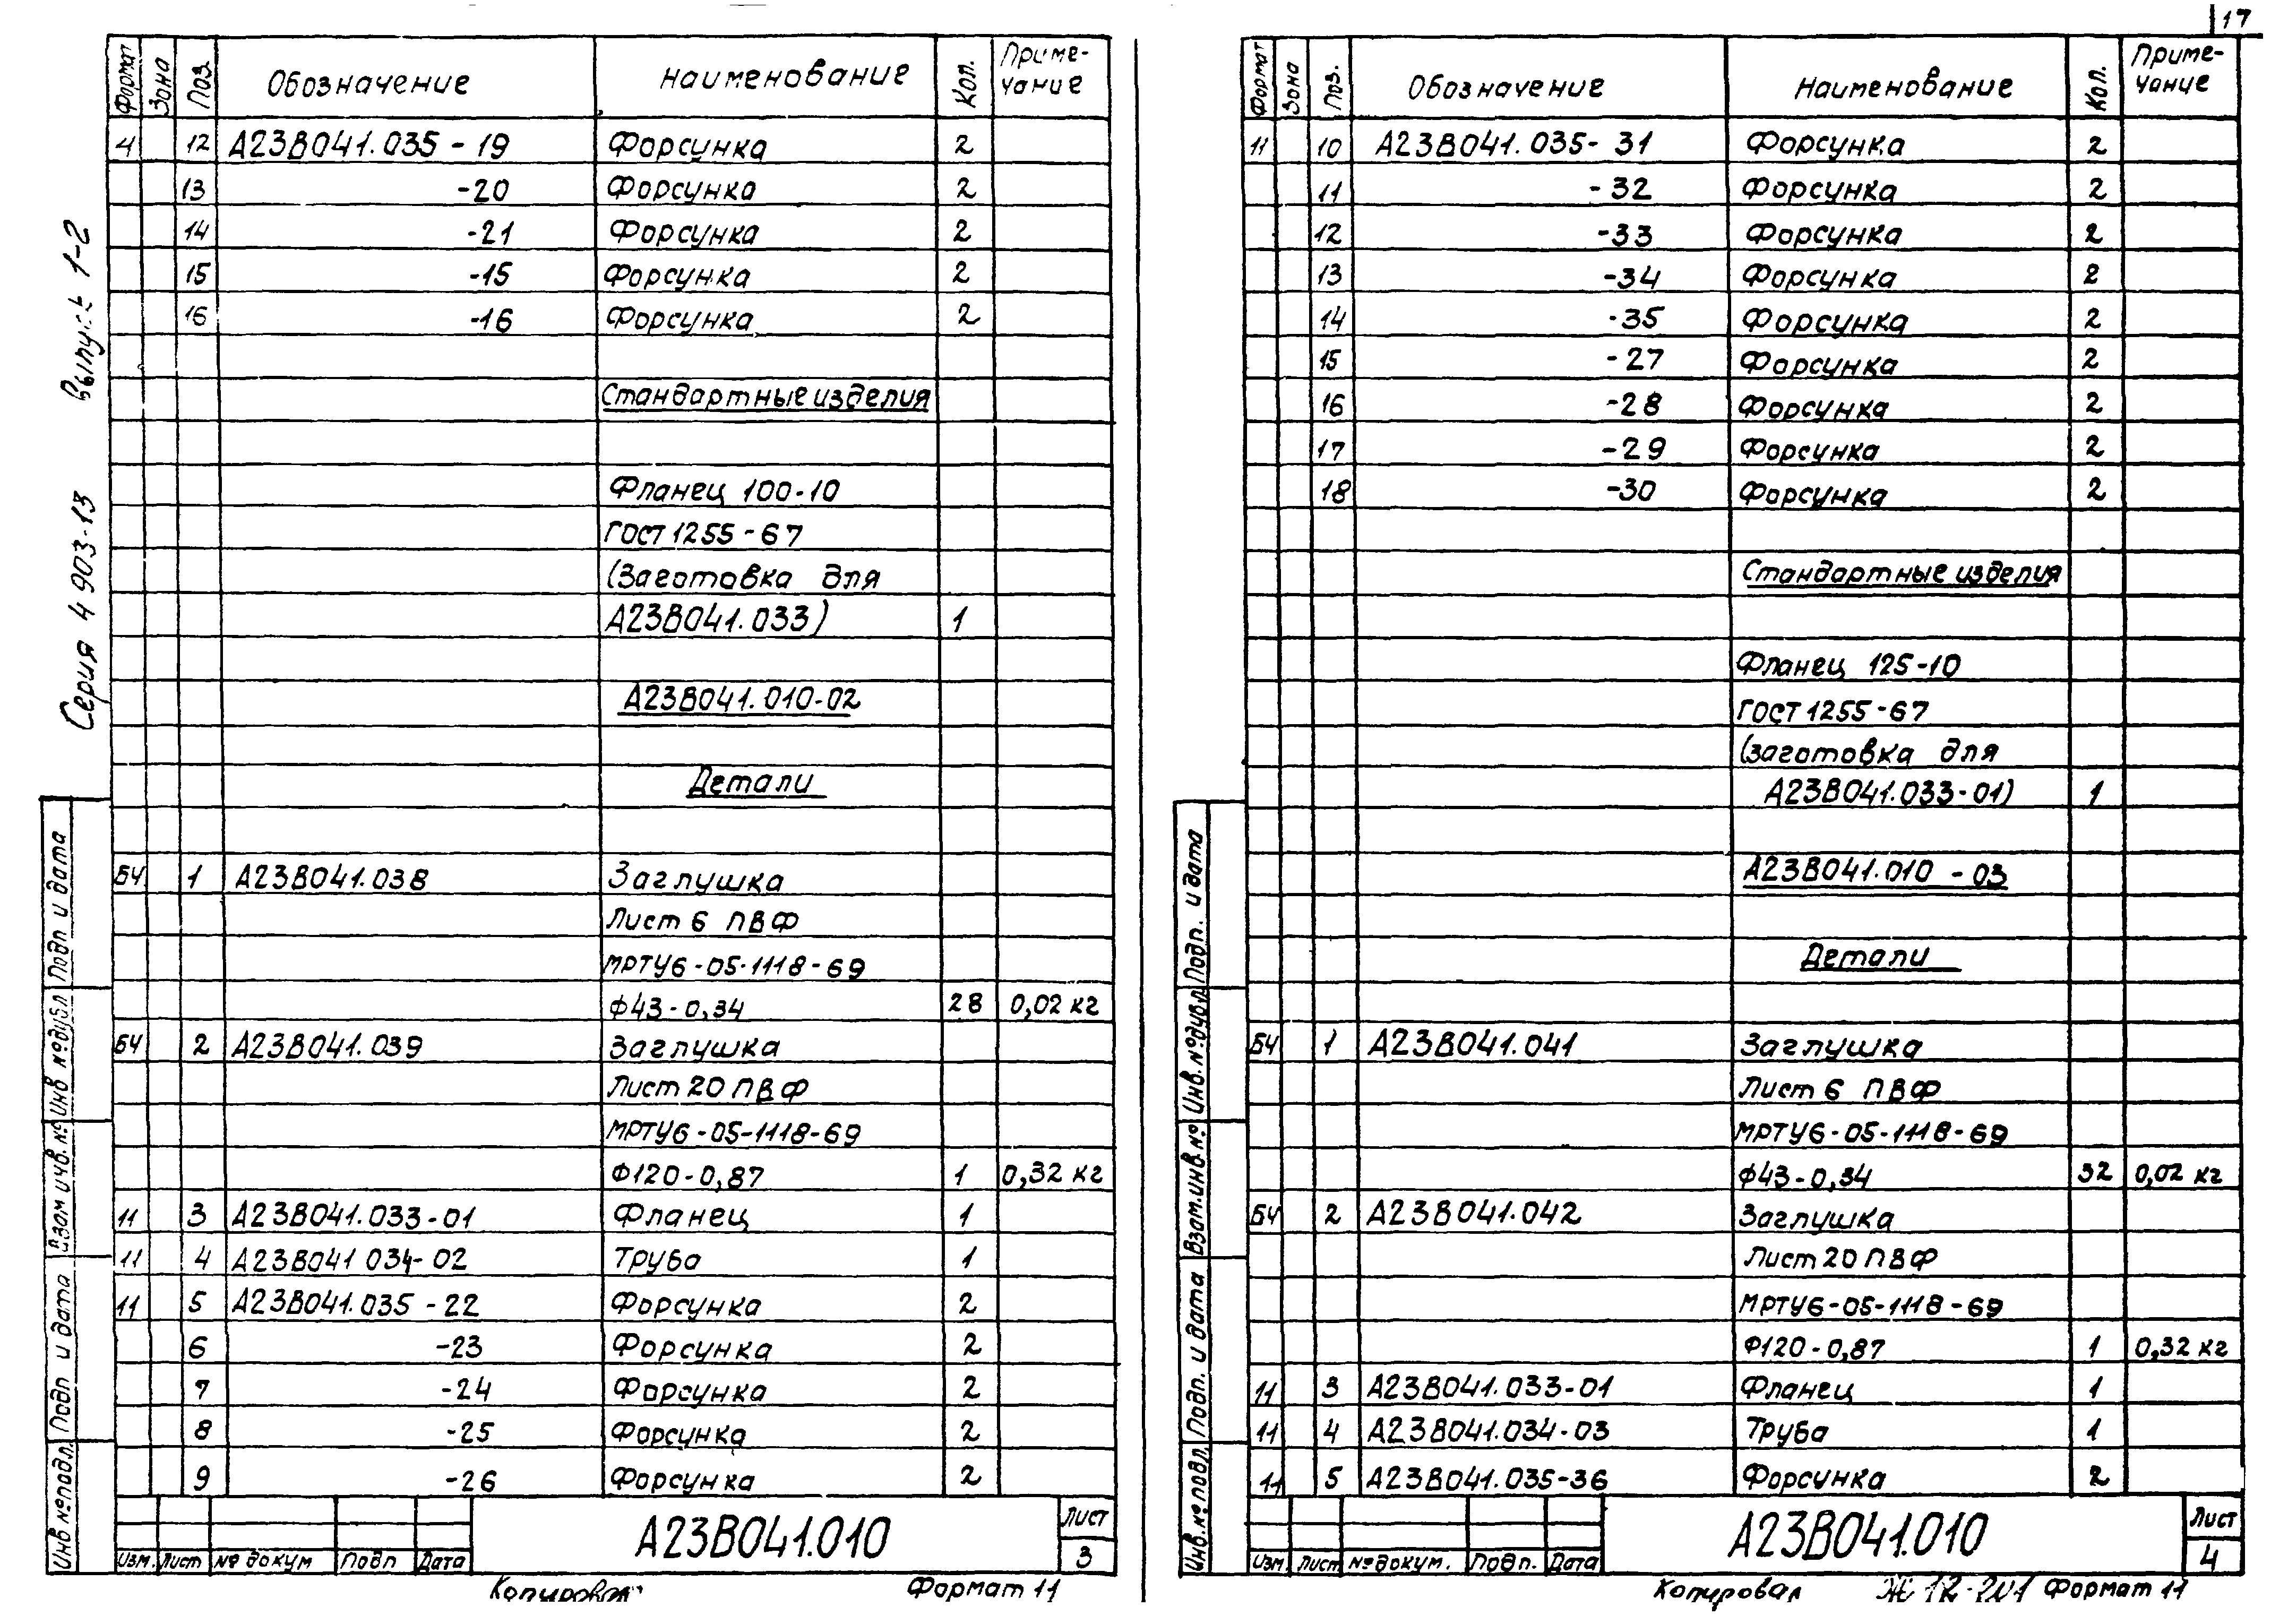 17
Формат Зона Поз. Обозначение Наименование Кол. Приме-
чание
11 12 А23В041.035-19 Форсунка 2
13 -20 Форсунка 2
14 -21 Форсунка 2
15 -15 Форсунка 2
16 -16 Форсунка 2
Стандартные изделия
Фланец 100-10
ГОСТ 1255-67
(Заготовка для
А23В041.033) 1
А23В041.010-02
Детали
БЧ 1 А23В041.038 Заглушка
Лист 6 ПВФ
МРТУ6-05-1118-69
ф43-0,34 28 0,02 кг
БЧ 2 А23В041.039 Заглушка
Лист 20 ПВФ
МРТУ6-05-1118-69
Ф120-0,87 1 0,32 кг
11 3 А23В041.033-01 Фланец 1
11 4 А23В041 034-02 Труба 1
11 5 А23В041.035-22 Форсунка 2
6 -23 Форсунка 2
7 -24 Форсунка 2
8 -25 Форсунка 2
9 -26 Форсунка 2
Изм. Лист № докум Подп Дата
А23В041.010
Лист
3
Копировал
Формат 11
Серия 4 903-13 Выпуск 1-2
Подп. и дата
Инв № дубл
Взам инв. №
Подп и дата
Инв № подл.
Формат Зона Поз. Обозначение Наименование Кол. Приме-
чание
11 10 А23В041.035-31 Форсунка 2
11 -32 Форсунка 2
12 -33 Форсунка 2
13 -34 Форсунка 2
14 -35 Форсунка 2
15 -27 Форсунка 2
16 -28 Форсунка 2
17 -29 Форсунка 2
18 -30 Форсунка 2
Стандартные изделия
Фланец 125-10
ГОСТ 1255-67
(заготовка для
А23В041.033-01) 1
А23В041.010-03
Детали
БЧ 1 А23В041.041 Заглушка
Лист 6 ПВФ
МРТУ6-05-1118-69
ф43-0,34 32 0,02 кг
БЧ 2 А23В041.042 Заглушка
Лист 20 ПВФ
МРТУ6-05-1118-69
Ф120-0,87 1 0,32 кг
11 3 А23В041.033-01 Фланец 1
11 4 А23В041.034-03 Труба 1
11 5 А23В041.035-36 Форсунка 2
Изм. Лист № докум. Подп. Дата
А23В041.010
Лист
4
Копировал
Формат 11
Подп. и дата
Инв. № дубл
Взам. инв. №
Подп. и дата
Инв. № подл.